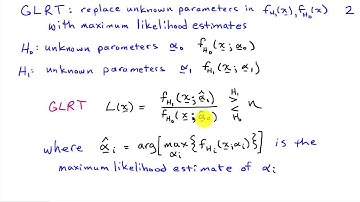 GLRT: replace unknown parameters in f_H₁(x), f_H₀(x) 2
with maximum likelihood estimates
H₀: unknown parameters α₀ f_H₀(x; α₀)
H₁: unknown parameters α₁ f_H₁(x; α₁)
GLRT L(x) = f_H₁(x; α̂₁) / f_H₀(x; α̂₀) ≷ η H₁ H₀
where α̂ᵢ = arg[max αᵢ {f_Hᵢ(x; αᵢ)}] is the
maximum likelihood estimate of αᵢ